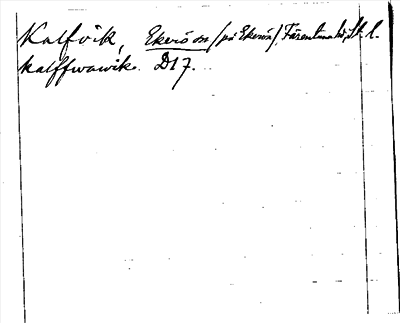 Kalfvik, Ekerö sn /på Ekerön/, Färentuna hd, St. l.
kalffwawik. D17.